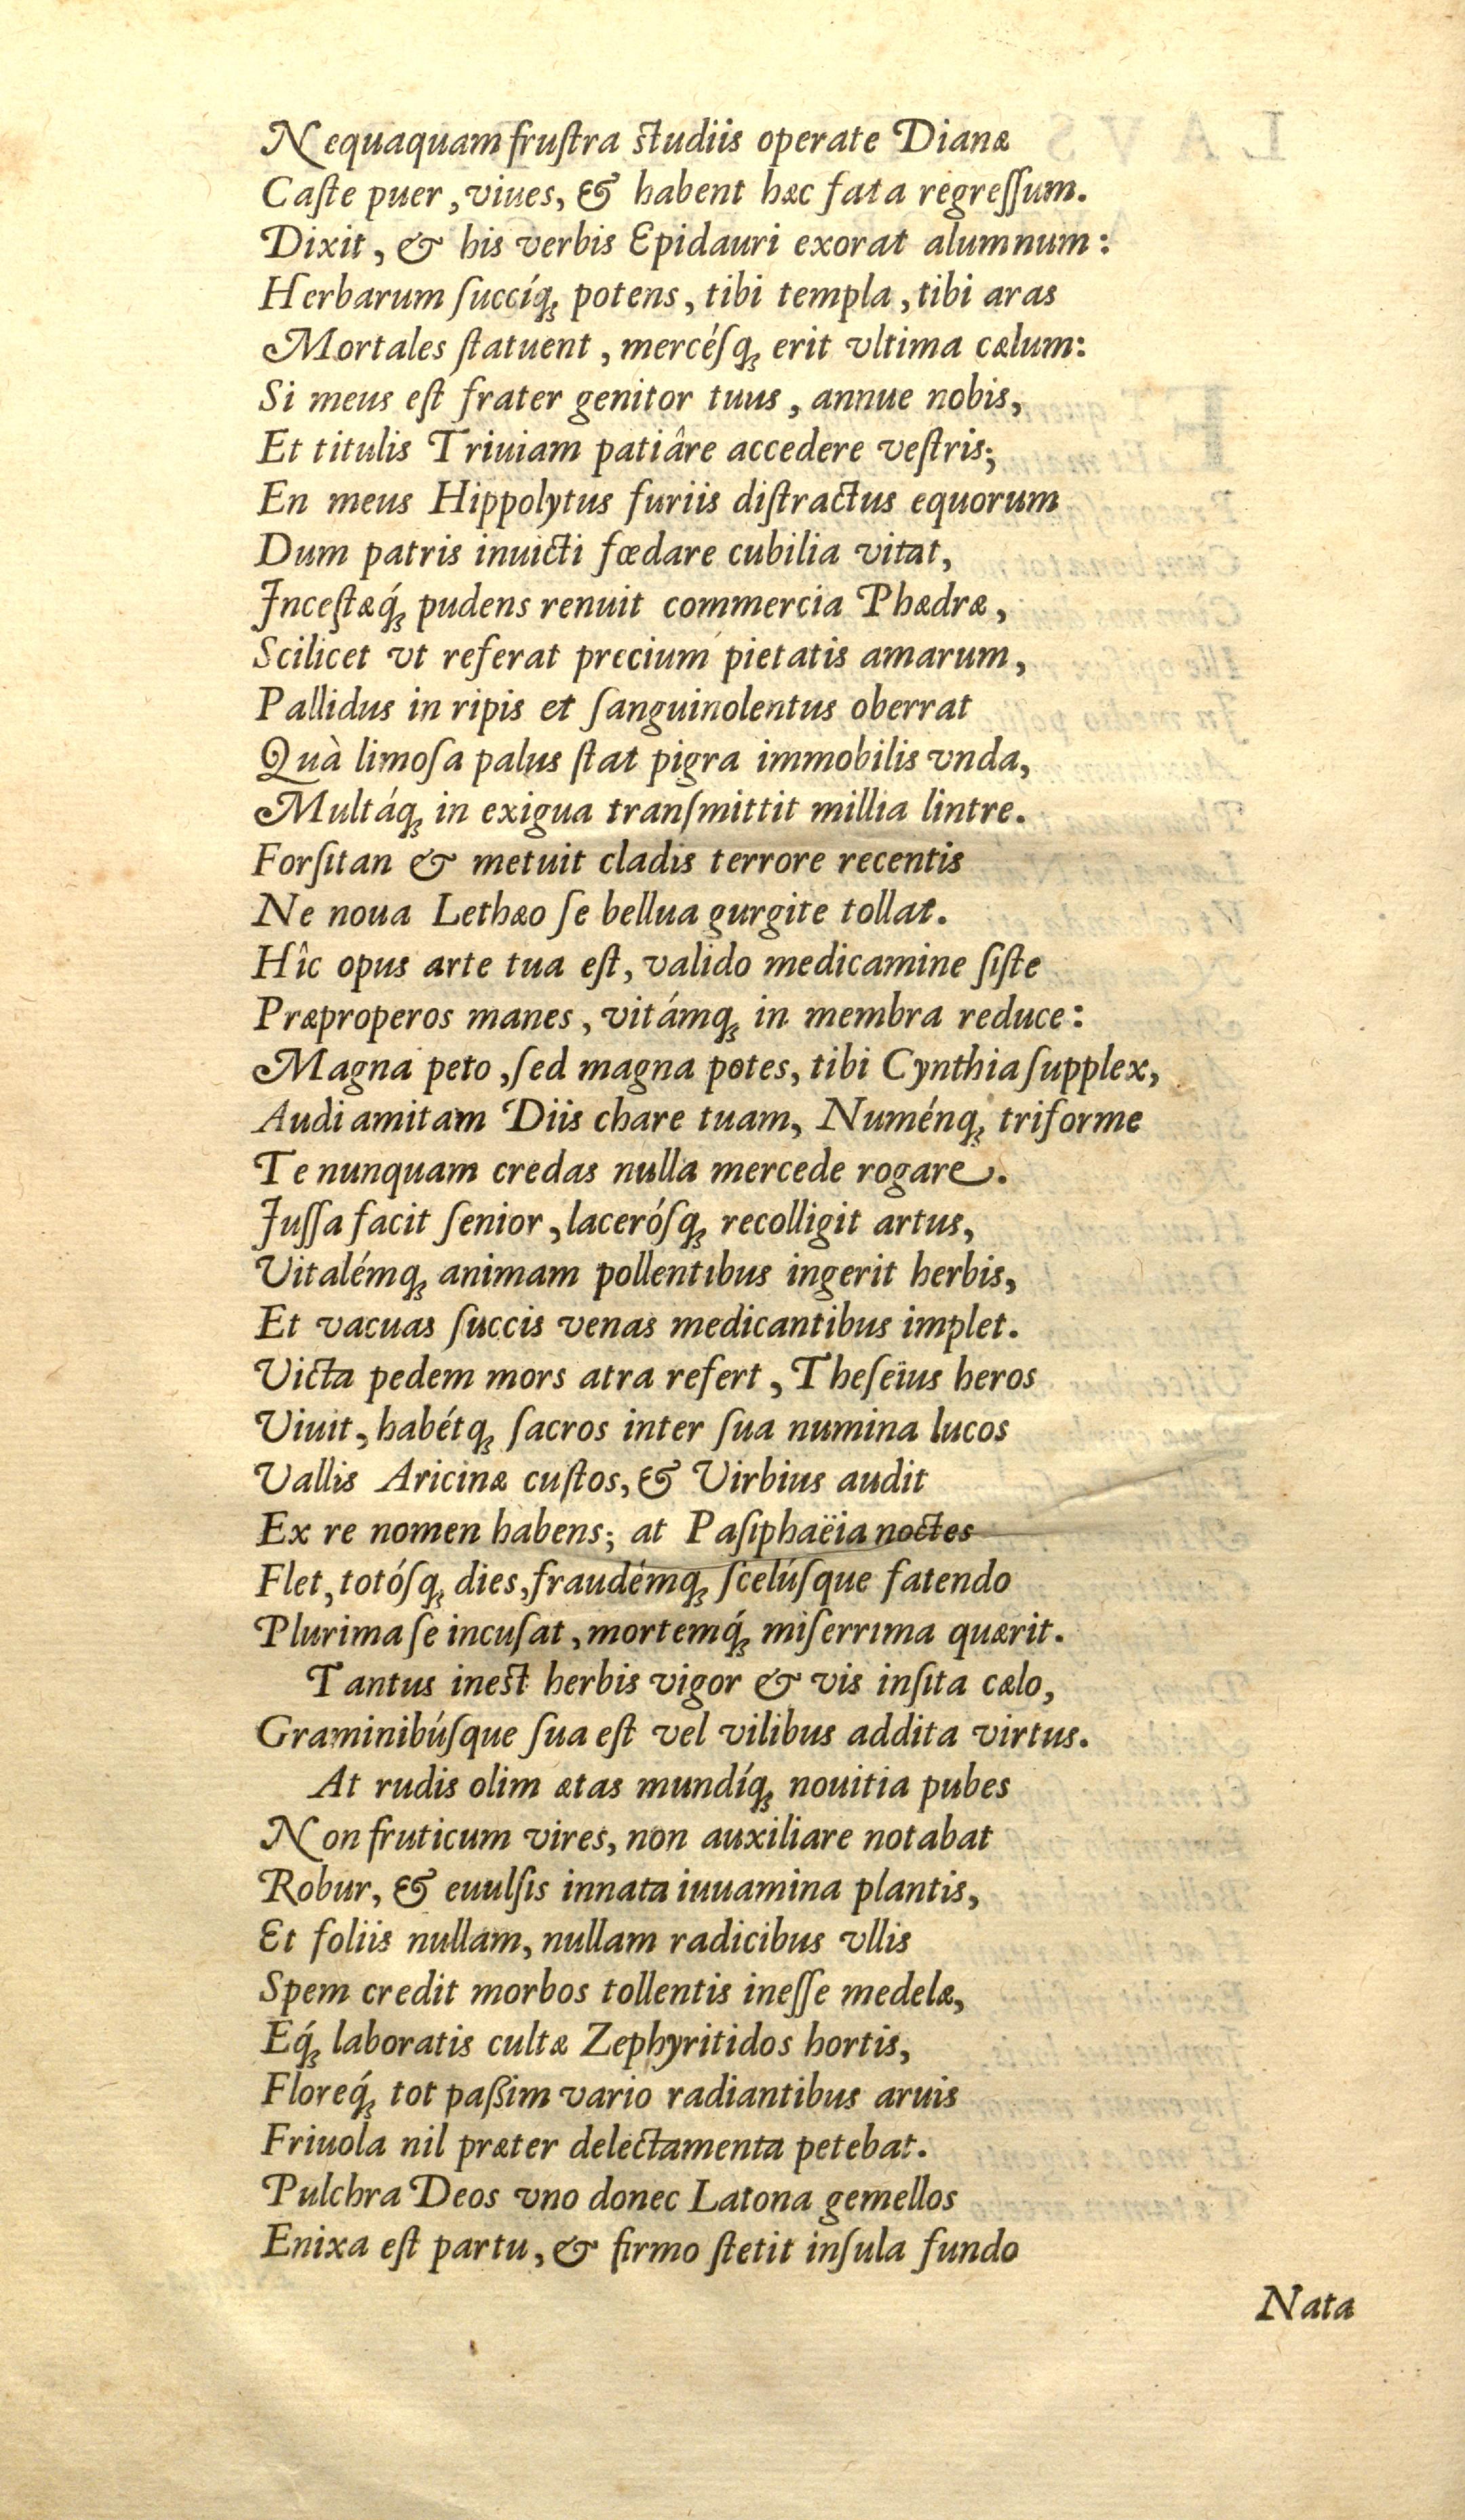 Nequaquam fruſtra ſtudiis operate Dianæ
Caſte puer, viues, & habent hæc fata regreſſum.
Dixit, & his verbis Epidauri exorat alumnum:
Herbarum ſuccíq; potens, tibi templa, tibi aras
Mortales ſtatuent, mercéſq; erit vltima cælum:
Si meus eſt frater genitor tuus, annue nobis,
Et titulis Triuiam patiâre accedere veſtris;
En meus Hippolytus furiis diſtractus equorum
Dum patris inuicti fœdare cubilia vitat,
Inceſtæq́; pudens renuit commercia Phædræ,
Scilicet vt referat precium pietatis amarum,
Pallidus in ripis et ſanguinolentus oberrat
Quà limoſa palus ſtat pigra immobilis vnda,
Multáq; in exigua tranſmittit millia lintre.
Forſitan & metuit cladis terrore recentis
Ne noua Lethæo ſe bellua gurgite tollat.
Hîc opus arte tua eſt, valido medicamine ſiſte
Præproperos manes, vitámq; in membra reduce:
Magna peto, ſed magna potes, tibi Cynthia ſupplex,
Audi amitam Diis chare tuam, Numénq; triforme
Te nunquam credas nulla mercede rogare.
Iuſſa facit ſenior, laceróſq; recolligit artus,
Vitalémq; animam pollentibus ingerit herbis,
Et vacuas ſuccis venas medicantibus implet.
Victa pedem mors atra refert, Theſeïus heros
Viuit, habétq; ſacros inter ſua numina lucos
Vallis Aricinæ cuſtos, & Virbius audit
Ex re nomen habens; at Paſiphaëia noctes
Flet, totóſq; dies, fraudémq; ſcelúſque fatendo
Plurima ſe incuſat, mortemq́; miſerrima quærit.
Tantus ineſt herbis vigor & vis inſita cælo,
Graminibúſque ſua eſt vel vilibus addita virtus.
At rudis olim ætas mundíq; nouitia pubes
Non fruticum vires, non auxiliare notabat
Robur, & euulſis innata iuuamina plantis,
Et foliis nullam, nullam radicibus vllis
Spem credit morbos tollentis ineſſe medelæ,
Eq́; laboratis cultæ Zephyritidos hortis,
Floreq́; tot paßim vario radiantibus aruis
Friuola nil præter delectamenta petebat.
Pulchra Deos vno donec Latona gemellos
Enixa eſt partu, & firmo ſtetit inſula fundo
Nata